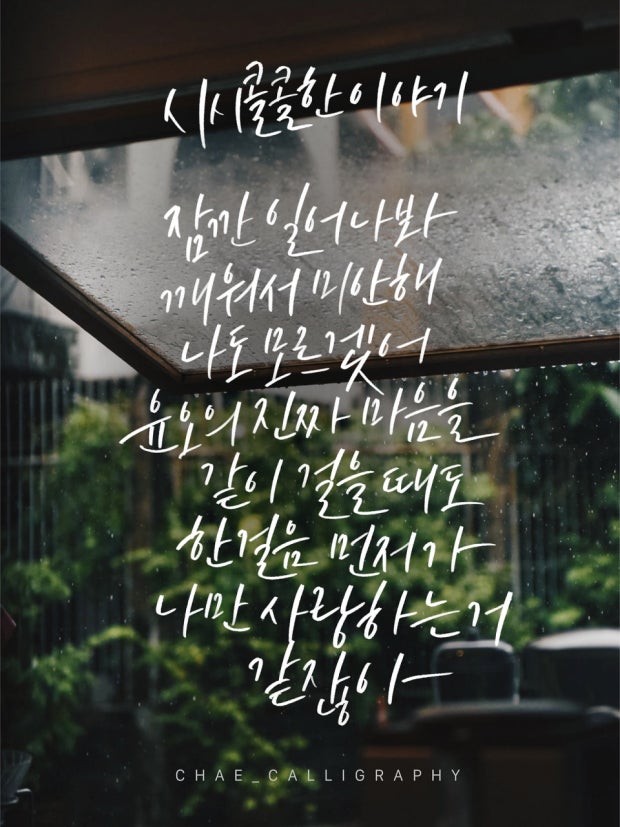 시시콜콜한 이야기
잠깐 일어나봐
깨워서 미안해
나도 모르겠어
윤오의 진짜 마음을
같이 걸을 때도
한걸음 먼저 가
나만 사랑하는 거
같잖아
CHAE_CALLIGRAPHY